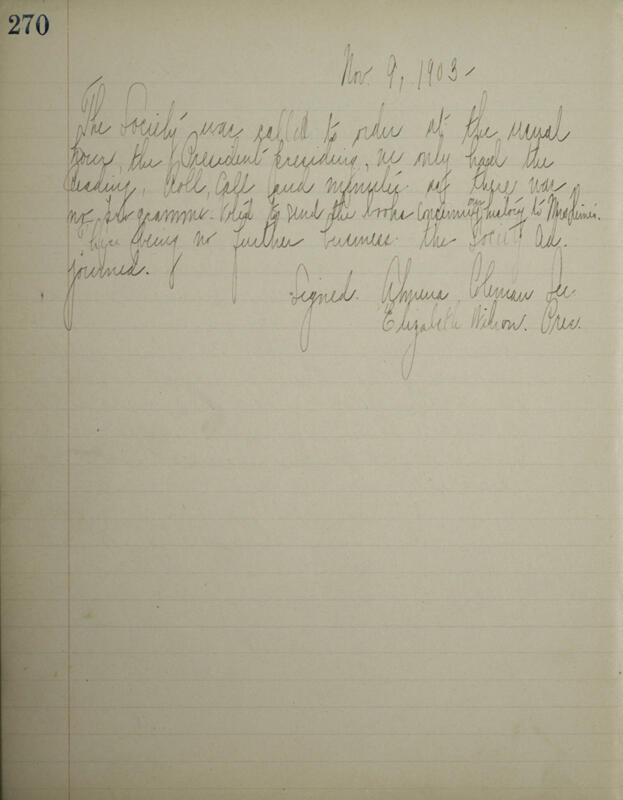 270
Nov. 9, 1903-
The Society was called to order at the usual
hour, the President presiding, we only had the
reading, Roll Call and minutes as there was
no programme. Voted to send the books concerning our history to Mrs
There being no further business the Society ad-
journed.
Signed. Almena Coleman Sec
Elizabeth Wilson. Pres.